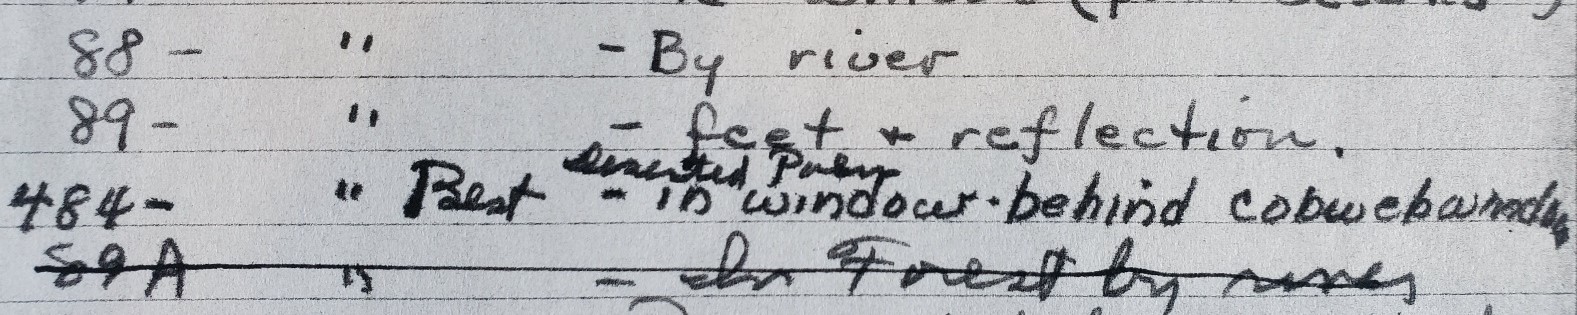 88 - " - By river
89 - " - feet + reflection.
deserted
484 - " Best - in window - behind cobweb window
89A " - In Forest by river